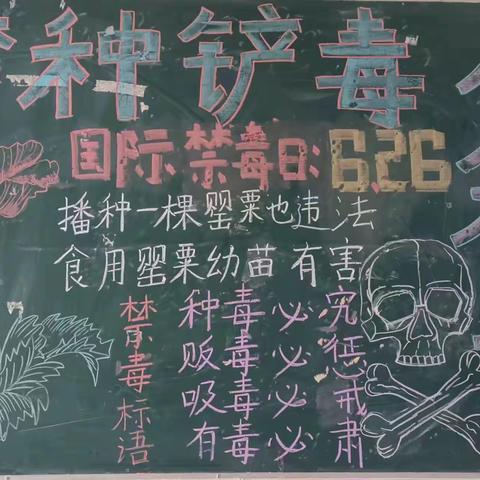 种铲毒
国际禁毒日:6.26
播种一棵罂粟也违法
食用罂粟幼苗有害
禁毒标语
种毒必究
贩毒必惩
吸毒必戒
有毒必肃